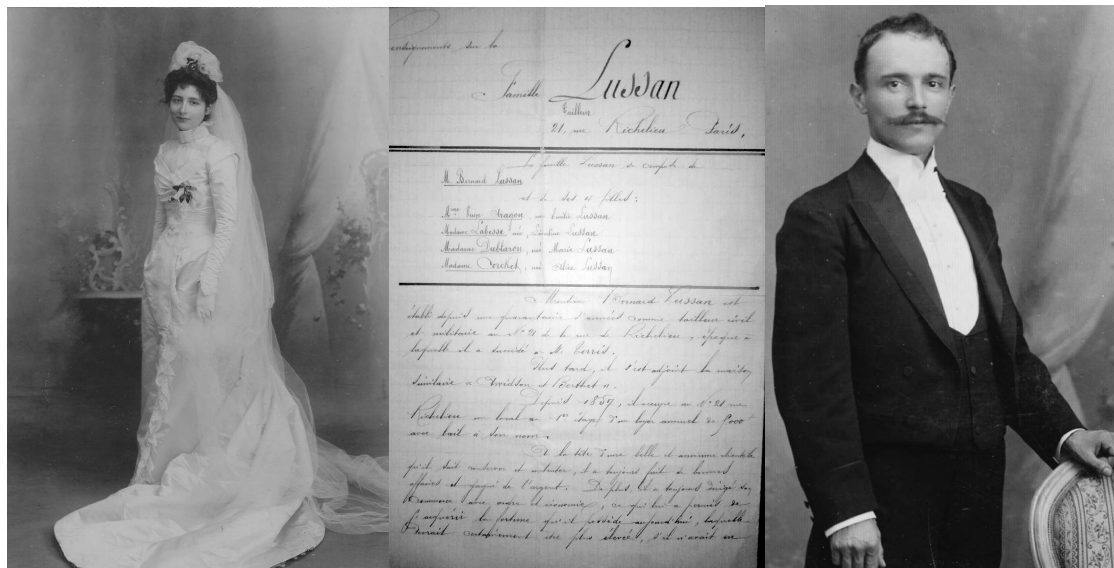 Renseignements sur la
Famille Lussan
Tailleur
21, rue Richelieu Paris.
La famille Lussan se compose de
M. Bernard Lussan
et de ses 4 filles:
Mme Aragon née Lussan
Madame Labesse née Lussan
Madame Dublaron, née Marie Lussan
Madame née Lussan
Monsieur Bernard Lussan est
établi depuis une quarantaine d'années comme tailleur civil
et militaire au No 21 de la rue de Richelieu, époque à
laquelle il a succédé à M.
Plus tard, il s'est adjoint la maison
similaire
Depuis il occupe au No 21 rue
Richelieu un local au 1er étage d'un loyer annuel de 9000
avec bail à son nom.
A la tête d'une belle et ancienne clientèle
qu'il sait conserver et il a toujours fait de bonnes
affaires et gagné de l'argent. De plus, il a toujours dirigé son
commerce avec ordre et économie, ce qui lui a permis de
acquérir la fortune qu'il possède aujourd'hui, laquelle
serait certainement être plus élevée, s'il n'avait eu